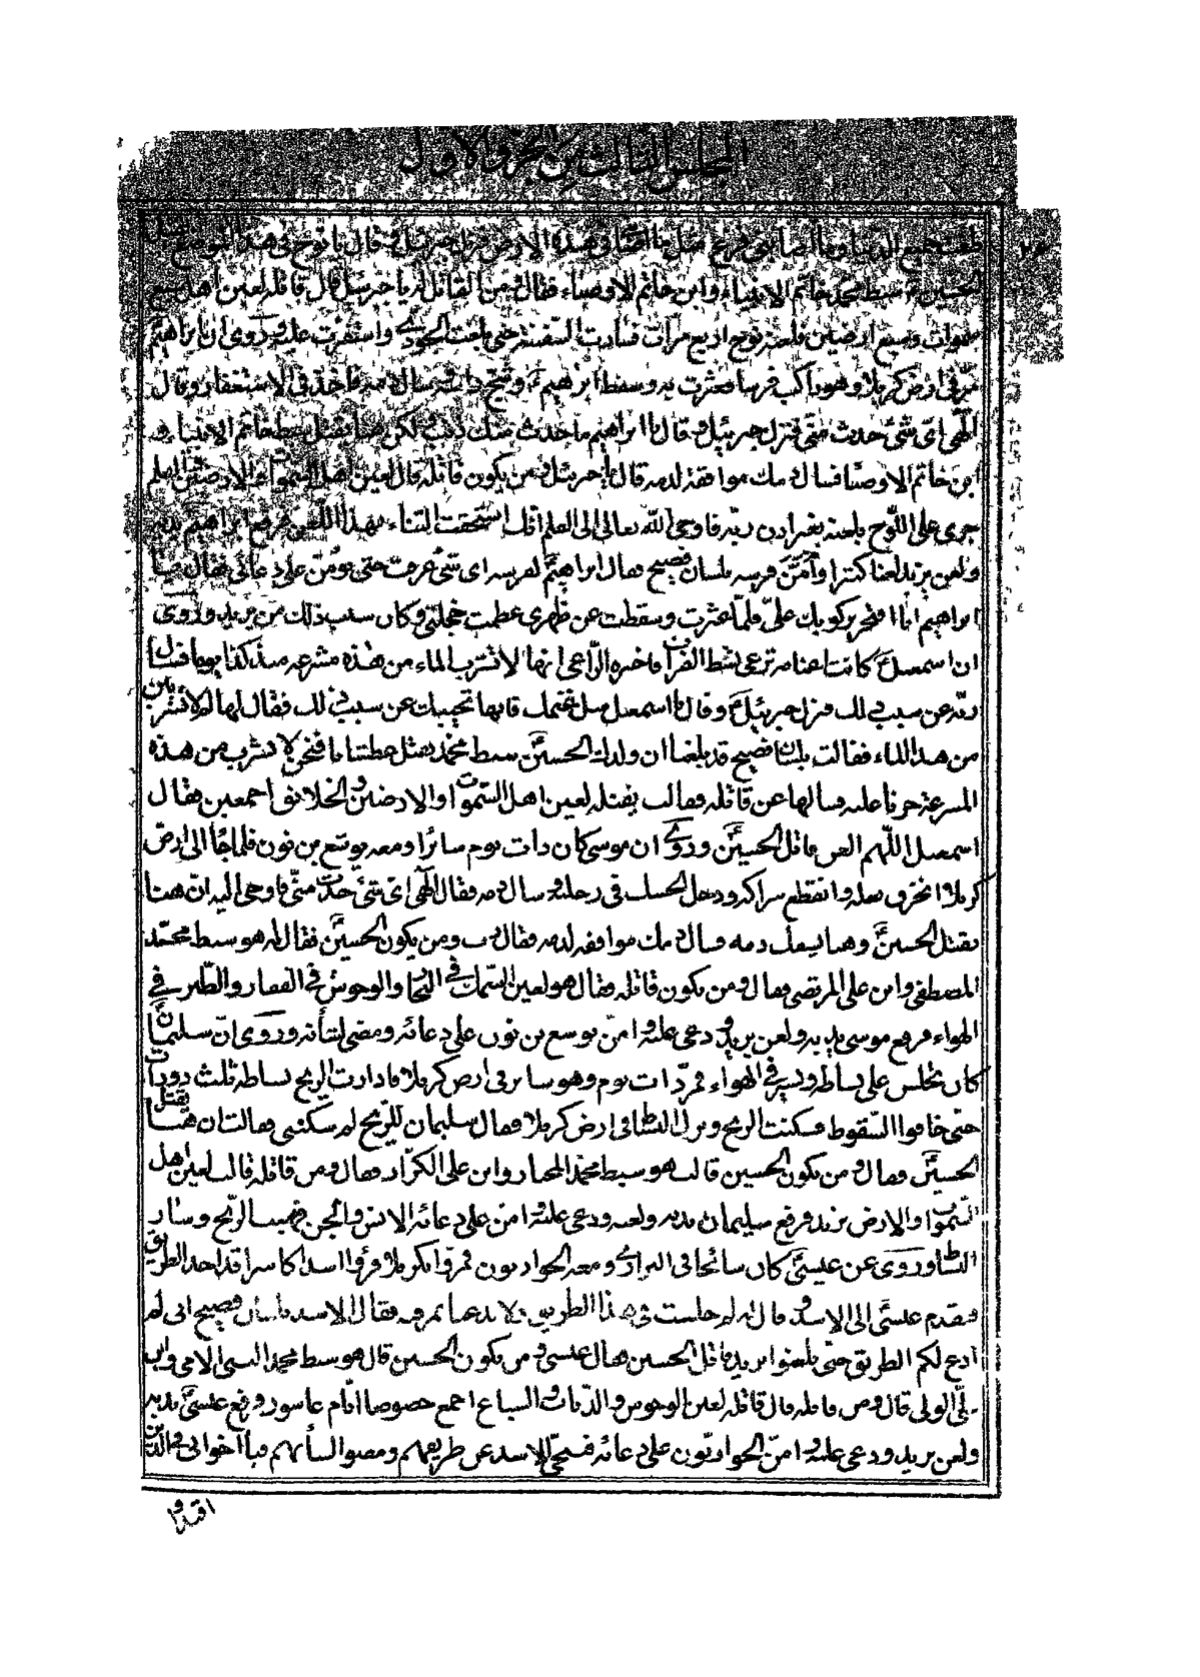 المجلس الثالث من الجزء الاول
٢٤
طفت جميع الدنيا وما اصابنى فزع مثل ما اصابنى فى هذه الارض فنزل جبرئيل و قال يا نوح فى هذا الموضع يقتل
الحسين سبط محمد خاتم الانبياء وابن خاتم الاوصياء فقال ومن القاتل له يا جبرئيل قال قاتله لعين اهل سبع
سموات وسبع ارضين فلعنه نوح اربع مرات فسارت السفينة حتى بلغت الجودى واستقرت عليه وروى ان ابراهيم
مر فى ارض كربلا وهو راكب فرسا فعثرت به وسقط ابرهيم وشج راسه وسال دمه فاخذ فى الاستغفار وقال
الهى اى شئ حدث منى فنزل جبرئيل و قال يا ابراهيم ما حدث منك ذنب ولكن هنا يقتل سبط خاتم الانبياء و
ابن خاتم الاوصيا فسال دمك موافقة لدمه قال يا جبرئيل ومن يكون قاتله قال لعين اهل السموات والارضين والقلم
جرى على اللوح بلعنه بغير اذن ربه فاوحى الله تعالى الى القلم انك استحقت الثناء بهذا اللعن فرفع ابراهيم يديه
ولعن يزيد لعنا كثيرا وامن فرسه بلسان فصيح فقال ابراهيم لفرسه اى شئ عرفت حتى تؤمن على دعائى فقال يا
ابراهيم انا افتخر بركوبك على فلما عثرت وسقطت عن ظهرى عظمت خجلتى وكان سبب ذلك من يزيد وروى
ان اسمعيل كانت اغنامه ترعى بشط الفرات فاخبره الراعى انها لا تشرب الماء من هذه مشرعه منذ كذا يوما فسال
ربه عن سبب ذلك فنزل جبرئيل و قال يا اسمعيل سل غنمك فانها تجيبك عن سبب ذلك فقال لها لم لا تشربين
من هذا الماء فقالت بلسان فصيح قد بلغنا ان ولدك الحسين سبط محمد يقتل عطشانا فنحن لا نشرب من هذه
المشرعة حزنا عليه فسالها عن قاتله فقالت يقتله لعين اهل السموات والارضين والخلائق اجمعين فقال
اسمعيل اللهم العن قاتل الحسين وروى ان موسى كان ذات يوم سائرا ومعه يوشع بن نون فلما جاء الى ارض
كربلا انخرق نعله وانقطع شراكه ودخل الحسك فى رجليه وسال دمه فقال الهى اى شئ حدث منى فاوحى اليه ان هنا
يقتل الحسين وهنا يسفك دمه فسال دمك موافقه لدمه فقال رب ومن يكون الحسين فقال له هو سبط محمد
المصطفى وابن على المرتضى فقال ومن يكون قاتله فقال هو لعين السمك فى البحار والوحوش فى القفار والطير فى
الهواء فرفع موسى يديه ولعن يزيد ودعى عليه وامن يوشع بن نون على دعائه ومضى لشأنه وروى ان سليمان
كان يجلس على بساطه ويسير فى الهواء فمر ذات يوم وهو سائر فى ارض كربلا فادارت الريح بساطه ثلث دورات
حتى خافوا السقوط فسكنت الريح ونزل البساط فى ارض كربلا فقال سليمان للريح لم سكنتى فقالت ان هنا يقتل
الحسين فقال ومن يكون الحسين قالت هو سبط محمد المختار وابن على الكرار فقال ومن قاتله قالت لعين اهل
السموات والارض يزيد فرفع سليمان يديه ولعنه ودعى عليه وامن على دعائه الانس والجن فهبت الريح وسار
البساط وروى عن عيسى كان سائحا فى البرارى ومعه الحواريون فمروا بكربلا فراوا اسدا كاسرا قد اخذ الطريق
فتقدم عيسى الى الاسد و قال له لم جلست فى هذا الطريق ولا تدعنا نمر فيه فقال الاسد بلسان فصيح انى لم
ادع لكم الطريق حتى تلعنوا يزيد قاتل الحسين فقال عيسى ومن يكون الحسين قال هو سبط محمد النبى الامى وابن
على الولى قال ومن قاتله قال قاتله لعين الوحوش والذباب والسباع اجمع خصوصا ايام عاشور فرفع عيسى يديه
ولعن يزيد ودعى عليه وامن الحواريون على دعائه فتنحى الاسد عن طريقهم ومضوا لشأنهم فيا اخوانى
اقتدوا